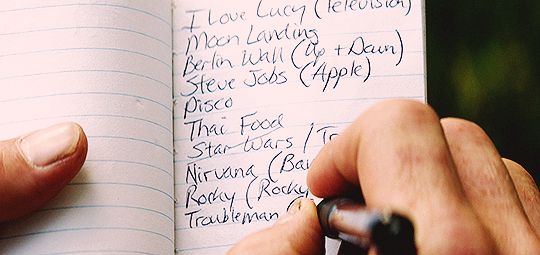 I Love Lucy (Television)
Moon Landing
Berlin Wall (Up + Down)
Steve Jobs (Apple)
Disco
Thai Food
Star Wars / Tr
Nirvana (Ba
Rocky (Rocky
Troubleman (